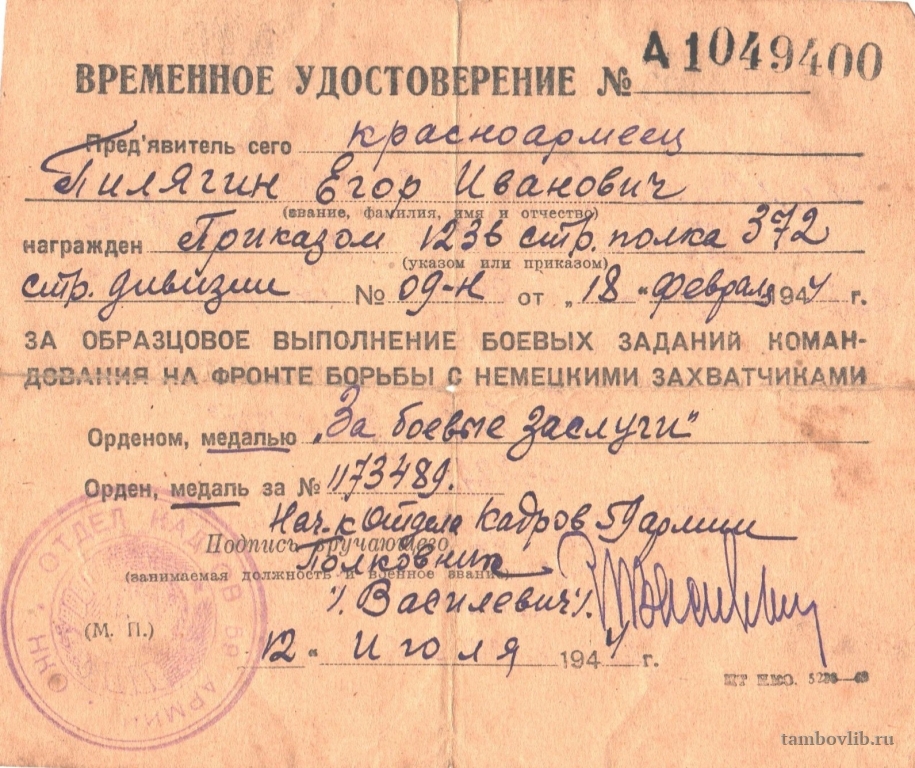 ВРЕМЕННОЕ УДОСТОВЕРЕНИЕ № А1049400
Пред'явитель сего красноармеец
Пилягин Егор Иванович
(звание, фамилия, имя и отчество)
награжден Приказом 1236 стр. полка 372
(указом или приказом)
стр. дивизии № 09-н от „18" февраля 1944 г.
ЗА ОБРАЗЦОВОЕ ВЫПОЛНЕНИЕ БОЕВЫХ ЗАДАНИЙ КОМАН-
ДОВАНИЯ НА ФРОНТЕ БОРЬБЫ С НЕМЕЦКИМИ ЗАХВАТЧИКАМИ
Орденом, медалью „За боевые заслуги"
Орден, медаль за № 1173489.
Нач-к Отдела Кадров армии
Подпись вручающего
Полковник
(занимаемая должность и военное звание)
/. Василевич /.
(М. П.)
12 " Июля 1944 г.
ОТДЕЛ КАДРОВ АРМИИ
tambovlib.ru